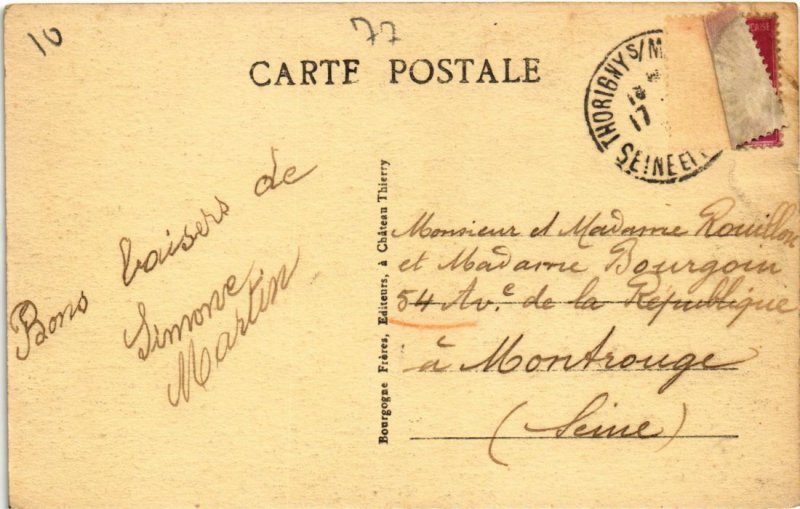 10
77
CARTE POSTALE
THORIGNY S/M
18
17
SEINE ET
AISE
Bons baisers de
Simone
Martin
Bourgogne Frères, Editeurs, à Château Thierry
Monsieur et Madame Rouillon
et Madame Bourgoin
54 Av.e de la République
à Montrouge
(Seine)